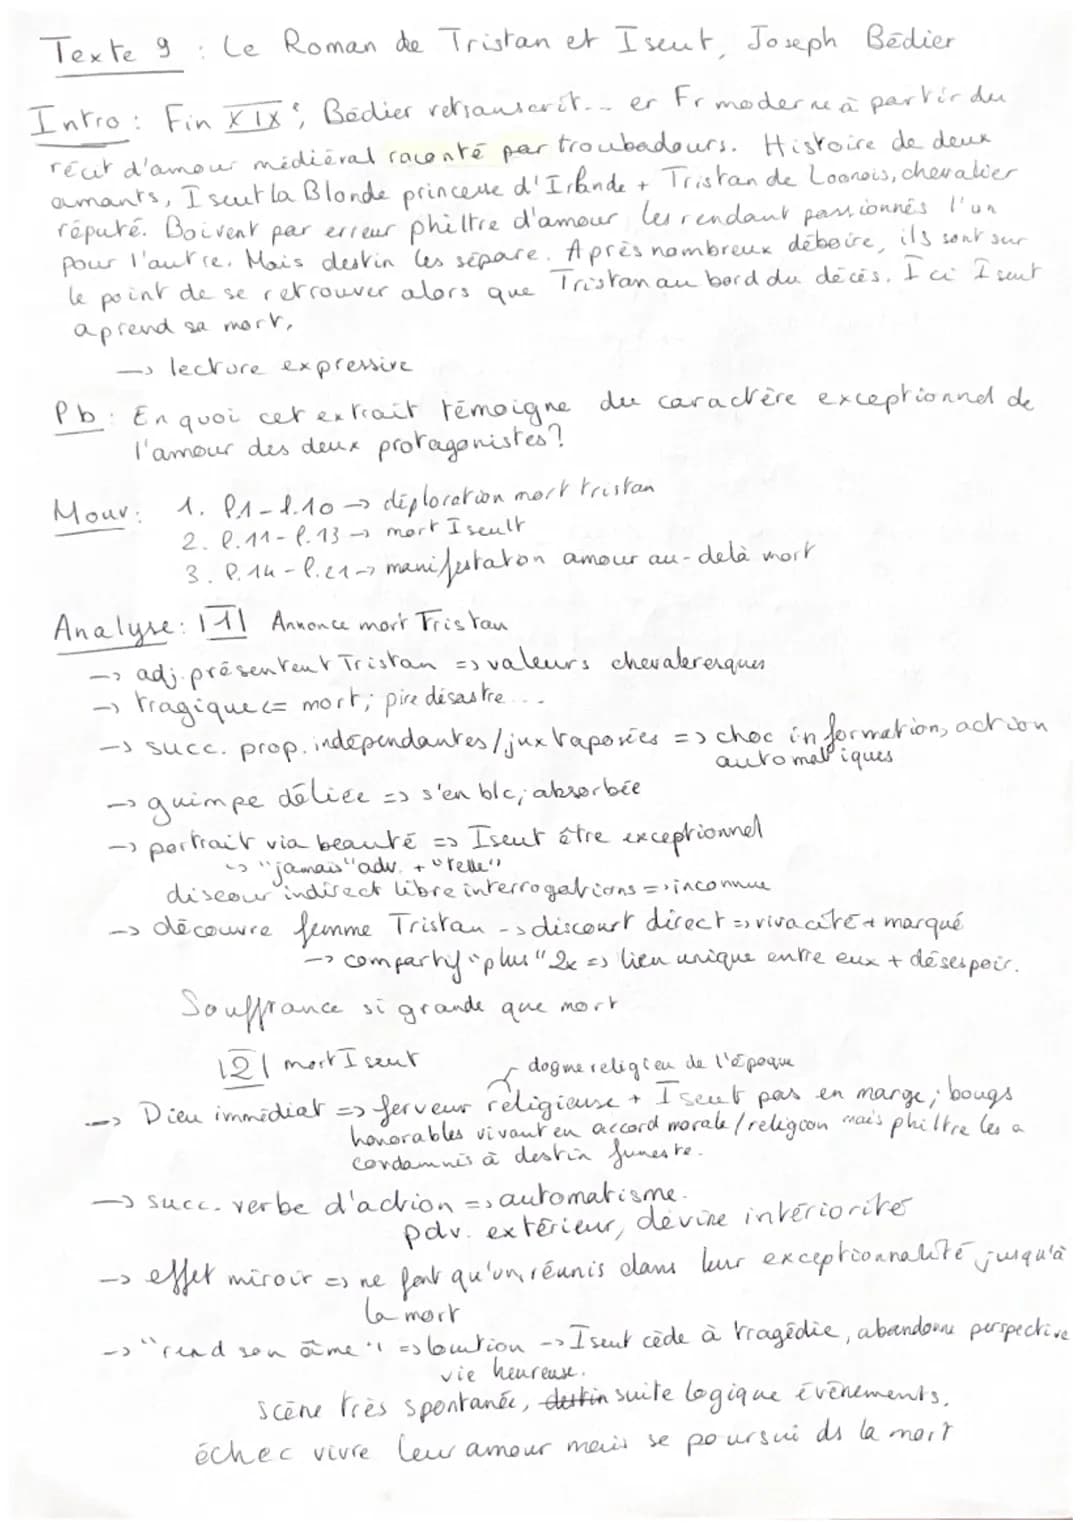 Texte 9 : Le Roman de Tristan et Iseut, Joseph Bédier
Intro : Fin XIXe, Bédier retranscrit... er Fr moderne à partir du
récit d'amour médiéval raconté par troubadours. Histoire de deux
amants, Iseut la Blonde princesse d'Irlande + Tristan de Loonois, chevalier
réputé. Boivent par erreur philtre d'amour les rendant passionnés l'un
pour l'autre. Mais destin les sépare. Après nombreux déboire, ils sont sur
le point de se retrouver alors que Tristan au bord du décès. Ici Iseut
aprend sa mort.
→ lecture expressive
Pb : En quoi cet extrait témoigne du caractère exceptionnel de
l'amour des deux protagonistes?
Mouv : 1. l.1 - l.10 → déploration mort tristan
2. l.11 - l.13 → mort Iseult
3. l.14 - l.21 → manifestaton amour au-delà mort
Analyse : |1| Annonce mort Tristan
→ adj. présentent Tristan => valeurs chevaleresques
→ tragique <= mort; pire désastre...
→ succ. prop. indépendantes/juxtaposées => choc information, action
automatiques
→ guimpe déliée => s'en blc; absorbée
→ portrait via beauté => Iseut être exceptionnel
↳ "jamais" adv. + "telle"
discour indirect libre interrogations => inconnue
→ découvre femme Tristan → discourt direct => vivacité + marqué
→ comparatif "plus" 2x => lien unique entre eux + désespoir.
Souffrance si grande que mort
|2| mort Iseut
dogme religieu de l'époque
→ Dieu immédiat => ferveur religieuse + Iseut pas en marge; bougs
honorables vivant en accord morale/religion mais philtre les a
condamnés à destin funeste.
→ succ. verbe d'action => automatisme.
pdv. extérieur, devine intériorité
→ effet miroir => ne font qu'un, réunis dans leur exceptionnalité jusqu'à
la mort
→ "rend son âme" => locution → Iseut cède à tragédie, abandonne perspective
vie heureuse.
scène très spontanée, destin suite logique évènements,
échec vivre leur amour mais se poursui ds la mort